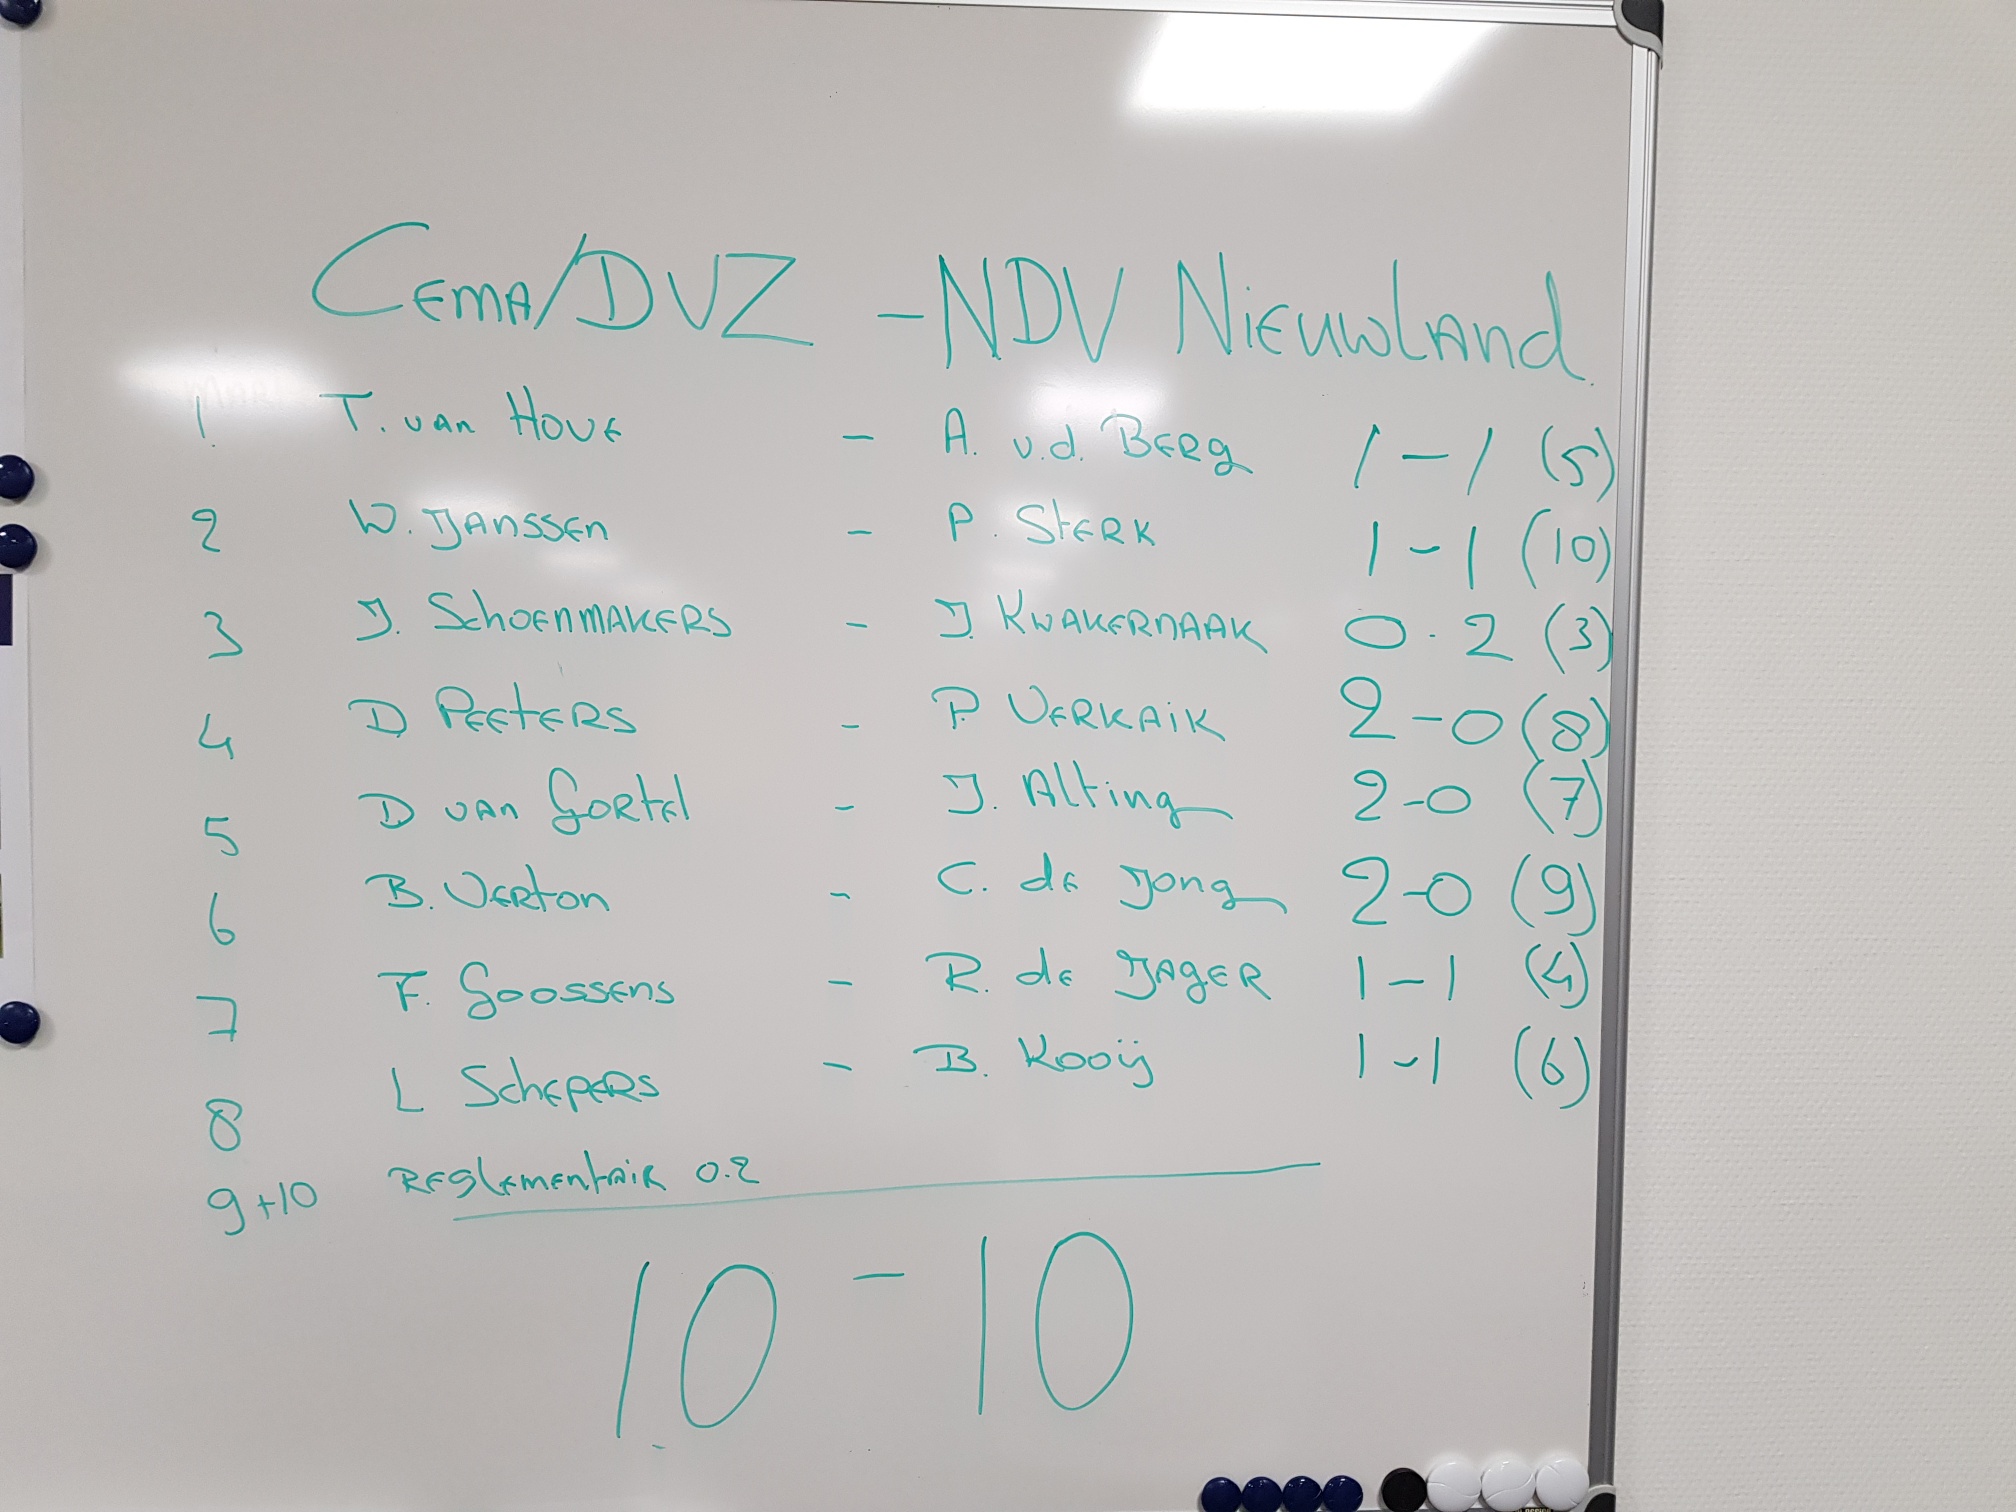 Cema/DVZ - NDV Nieuwland
1 T. van Hove - A. v.d. Berg 1-1 (5)
2 W. Janssen - P. Sterk 1-1 (10)
3 J. Schoenmakers - J. Kwakernaak 0.2 (3)
4 D Peeters - P. Verkaik 2-0 (8)
5 D van Gortel - J. Alting 2-0 (7)
6 B. Verton - C. de Jong 2-0 (9)
7 F. Goossens - R. de Jager 1-1 (4)
8 L Schepers - B. Kooij 1-1 (6)
9+10 Reglementair 0.2
10-10